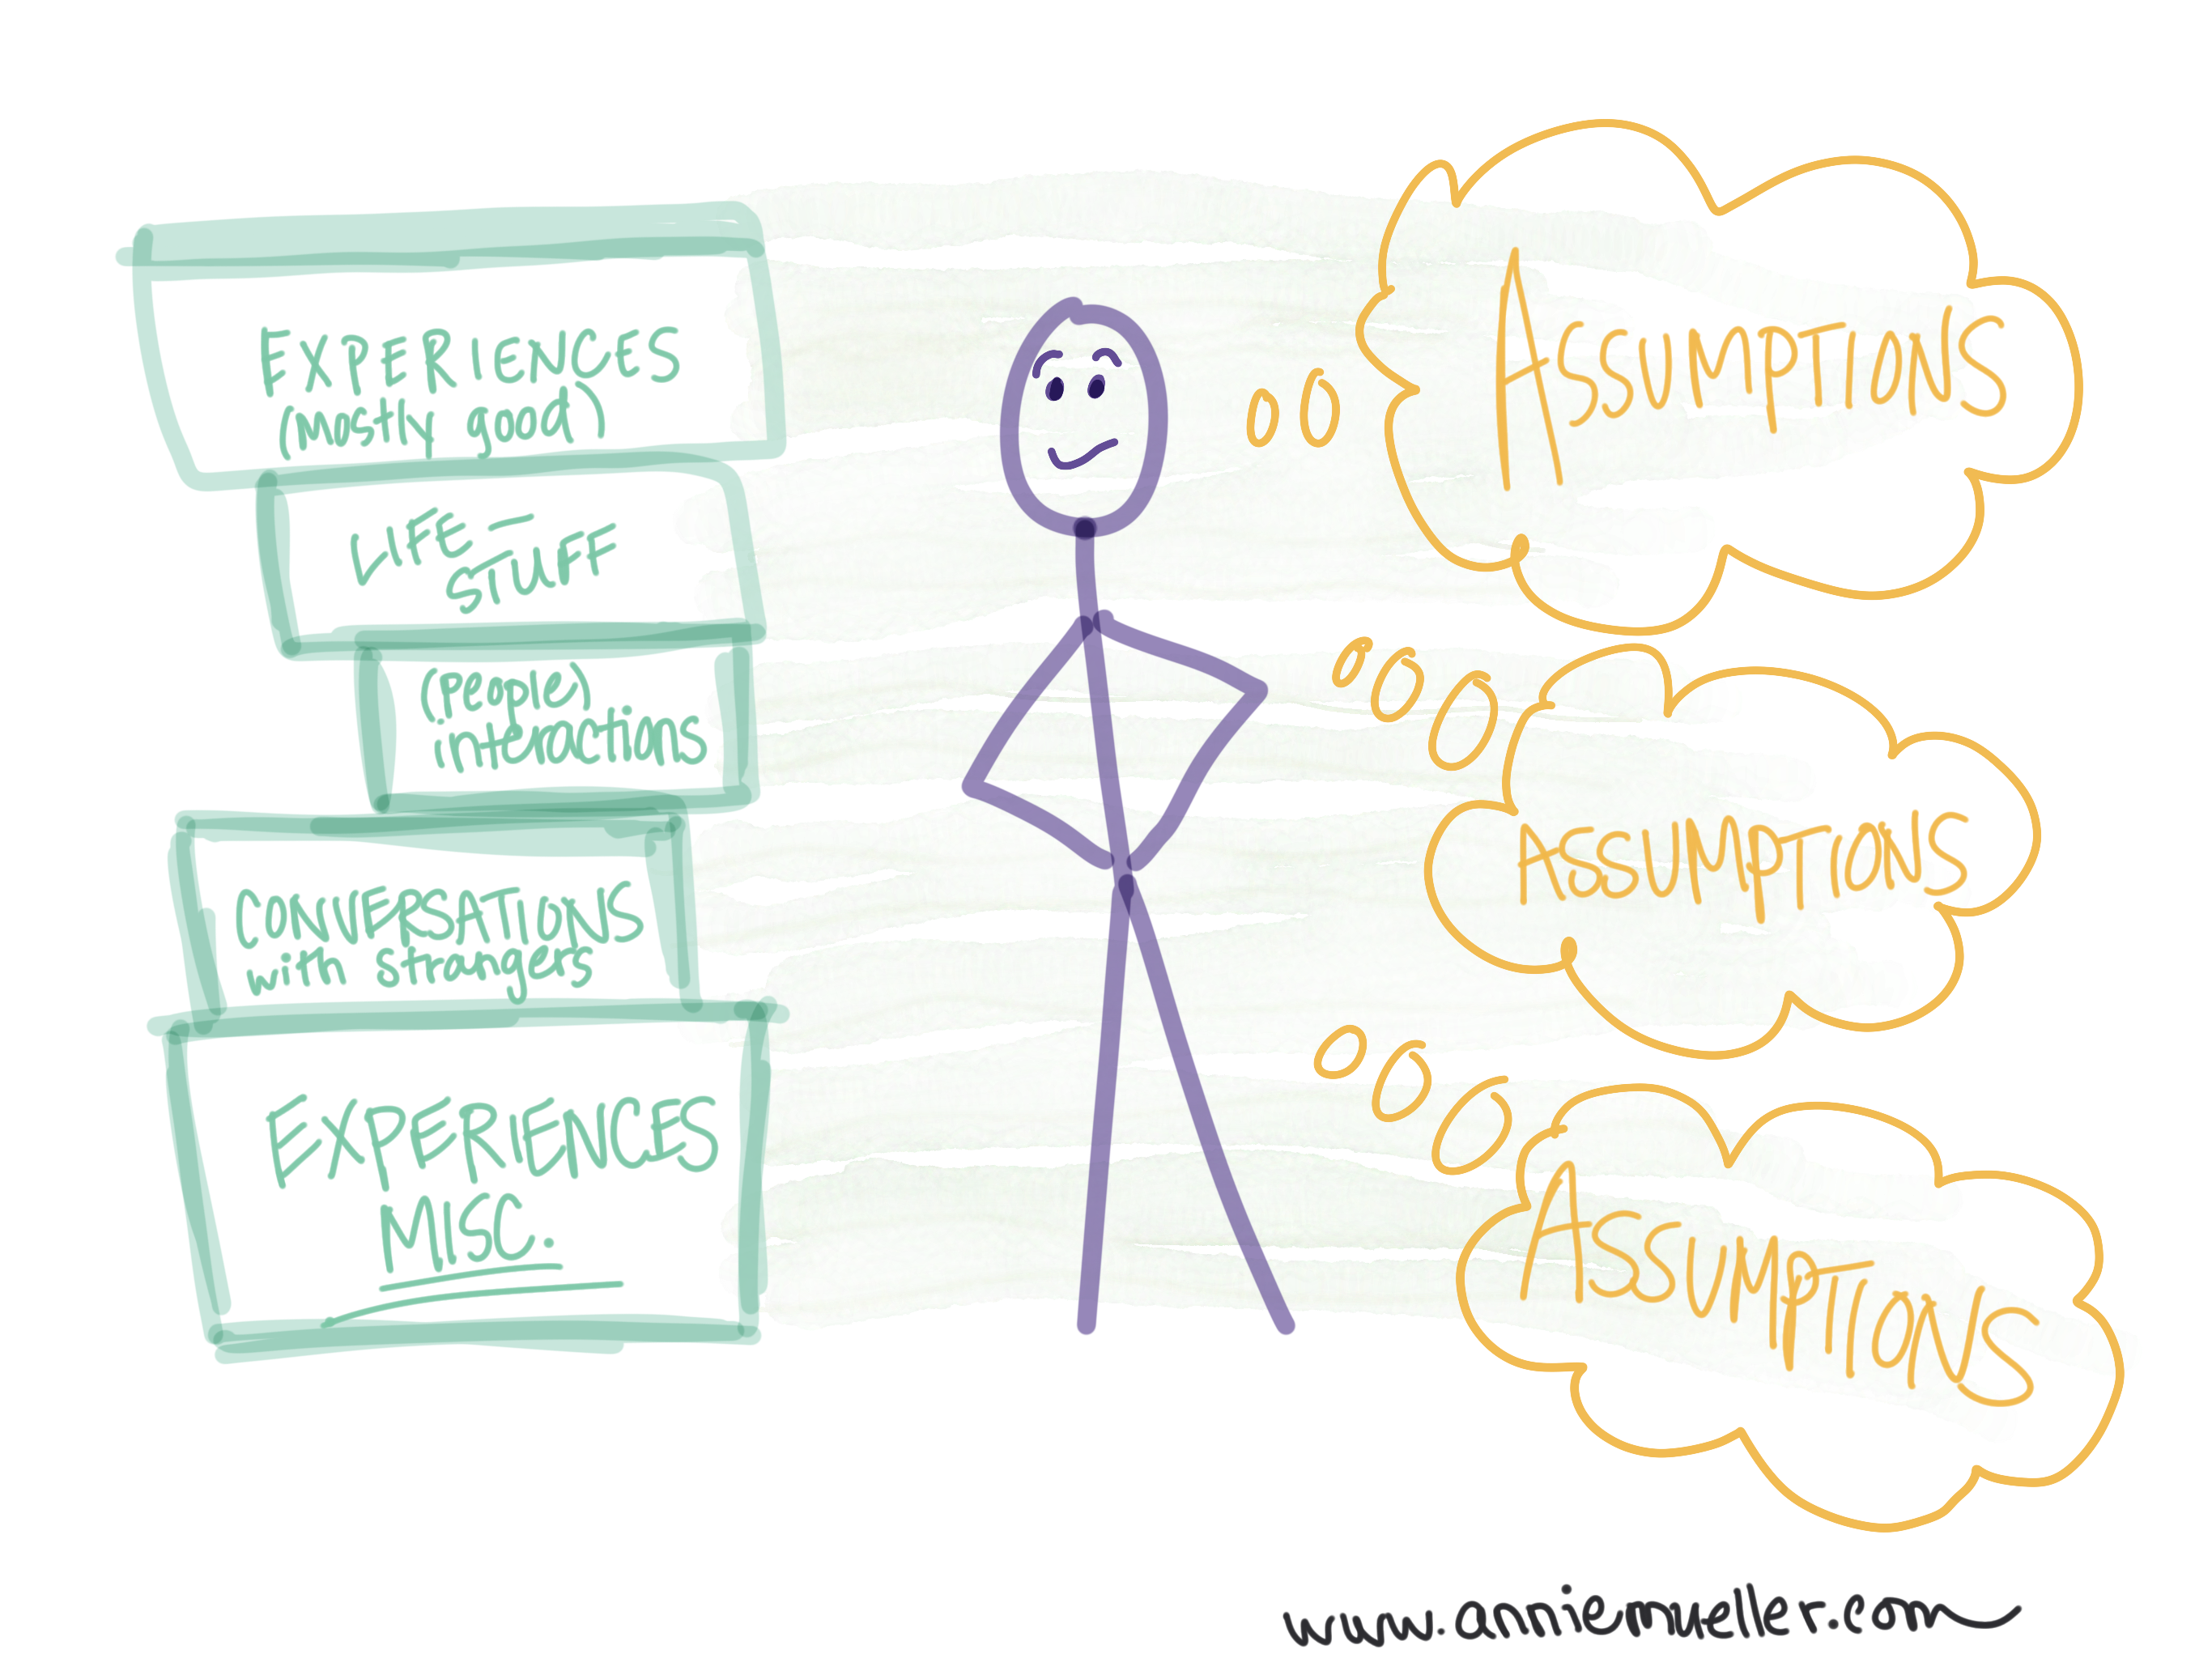 EXPERIENCES
(mostly good)
LIFE —
STUFF
(people)
interactions
CONVERSATIONS
with strangers
EXPERIENCES
MISC.
ASSUMPTIONS
ASSUMPTIONS
ASSUMPTIONS
www.anniemueller.com